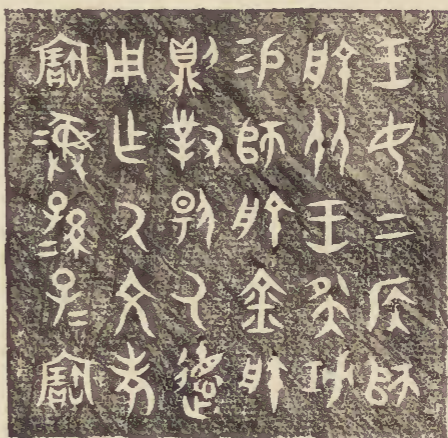 王女上侯師
艅从王夜功
易師艅金艅
則對揚厥德
用乍厥文考
寶彝孫=子=寶